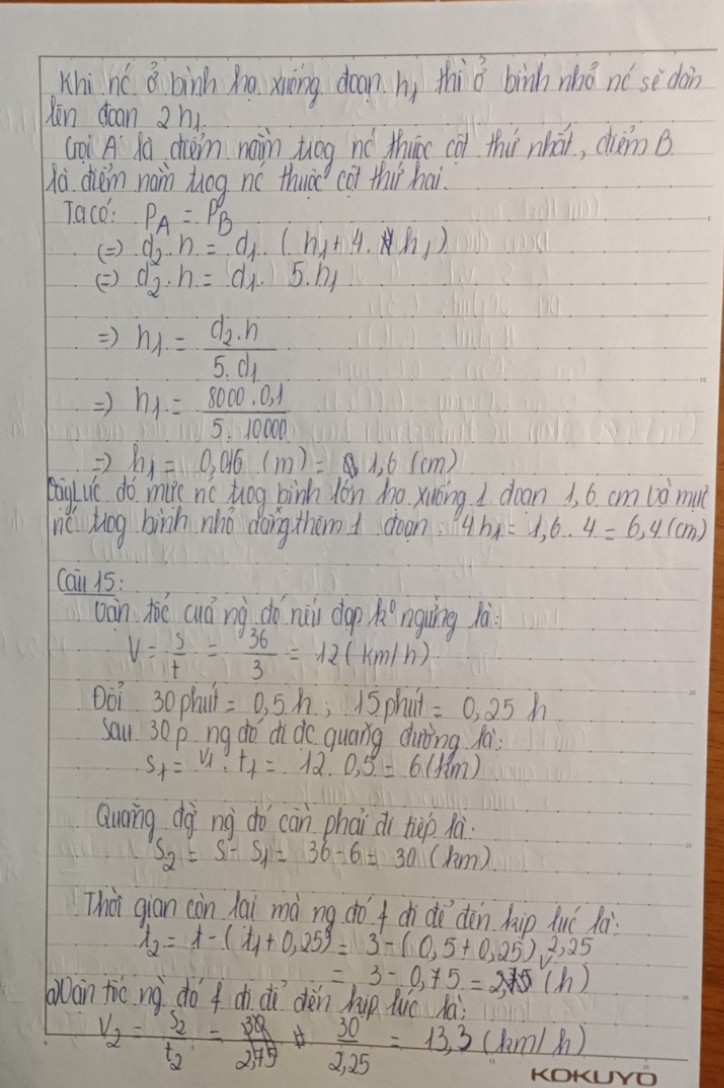 Khi nc ở bình hạ xuống đoạn h1 thì ở bình nhỏ nc sẽ dân
lên đoạn 2h1
Gọi A là điểm nằm trog nc thuộc cột thứ nhất, điểm B
là điểm nằm trog nc thuộc cột thứ hai.
Ta có: PA = PB
(=) d2.h = d1.(h1+4.h1)
(=) d2.h = d1.5.h1
=) h1 = d2.h / 5.d1
=) h1 = 8000.0,1 / 5.10000
=) h1 = 0,016 (m) = 1,6 (cm)
Vậy lúc đó mức nc trog bình lớn hạ xuống 1 đoạn 1,6 cm và mực
nc trog bình nhỏ dâng thêm 1 đoạn: 4h1 = 1,6.4 = 6,4 (cm)
Câu 15:
Vận tốc của ng đó nếu đạp k ngừng là:
V = s/t = 36/3 = 12 (km/h)
Đổi 30 phút = 0,5 h; 15 phút = 0,25 h
Sau 30p ng đó đi dc quãng đường là:
S1 = V1.t1 = 12.0,5 = 6 (km)
Quãng đg ng đó còn phải đi tiếp là:
S2 = S - S1 = 36 - 6 = 30 (km)
Thời gian còn lại mà ng đó f đi để đến kịp lúc là:
t2 = t - (t1 + 0,25) = 3 - (0,5 + 0,25)
= 3 - 0,75 = 2,25 (h)
Vận tốc ng đó f đi để đến kịp lúc là:
V2 = S2/t2 = 30/2,25 = 13,3 (km/h)
KOKUYO